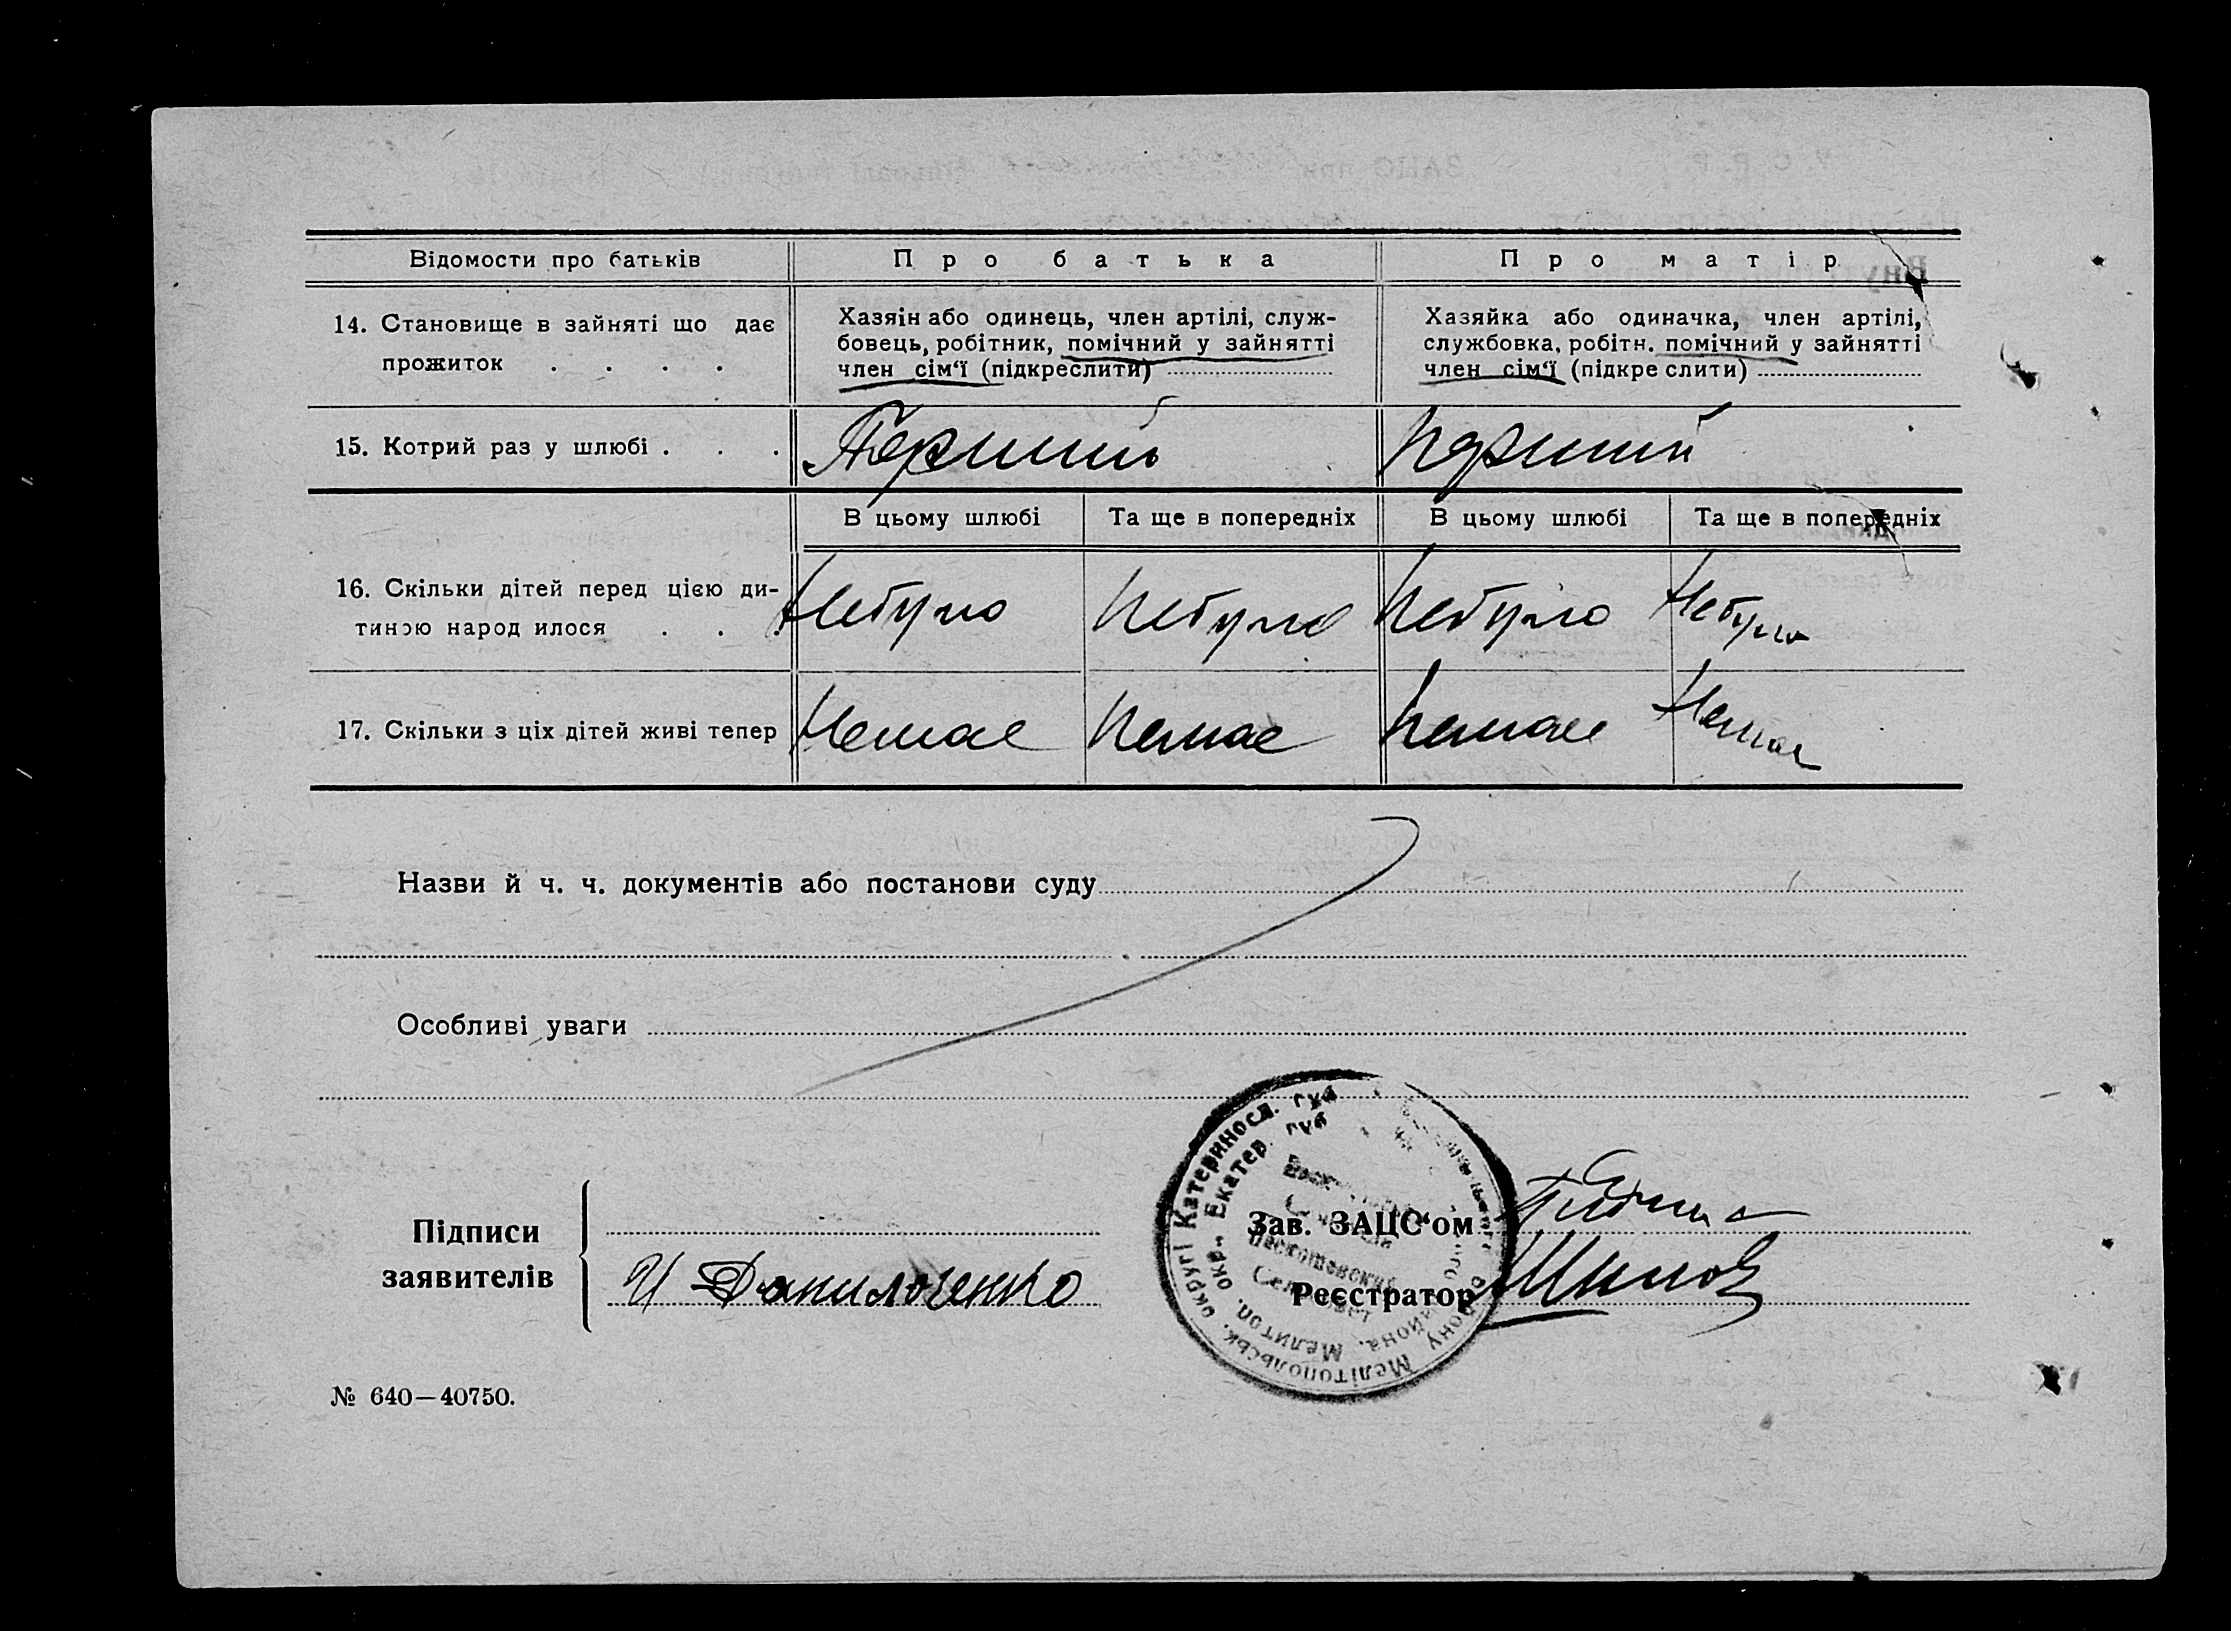 Відомости про батьків
Про батька
Про матір
14. Становище в зайняті що дає
прожиток . . . .
Хазяін або одинець, член артілі, служ-
бовець, робітник, помічний у зайнятті
член сім'ї (підкреслити)
Хазяйка або одиначка, член артілі,
службовка, робітн. помічний у зайнятті
член сім'ї (підкре слити)
15. Котрий раз у шлюбі . . .
Перший
Перший
В цьому шлюбі
Та ще в попередніх
В цьому шлюбі
Та ще в попередніх
16. Скільки дітей перед цією ди-
тиною народ илося . . .
Небуло
Небуло
Небуло
Небуло
17. Скільки з ціх дітей живі тепер
Немае
Немае
Немае
Немае
Назви й ч. ч. документів або постанови суду
Особливі уваги
Підписи
заявителів
И Данильченко
Катеринослав. губ
Екатер. губ
Мелітопольськ. округі
Мелитоп. окр.
Зав. ЗАЦС'ом
Реєстратор
№ 640—40750.